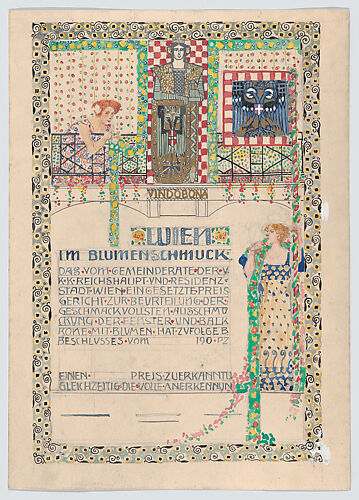 VINDOBONA
WIEN
IM BLUMENSCHMUCK
DAS·VOM·GEMEINDERATE·DER·K·
K·REICHSHAUPT·UND·RESIDENZ·
STADT·WIEN·EINGESETZTE·PREIS
GERICHT·ZUR·BEURTEILUNG·DER
GESCHMACKVOLLSTEN·AUSSCHMÜ
CKUNG·DER·FENSTER·UND·BALK
ONE·MIT·BLUMEN·HAT·ZVFOLGE
BESCHLUSSES·VOM 190·PZ
EINEN· PREIS·ZUERKANNT
GLEICHZEITIG·DIE·VOLLE·ANERKENNUN